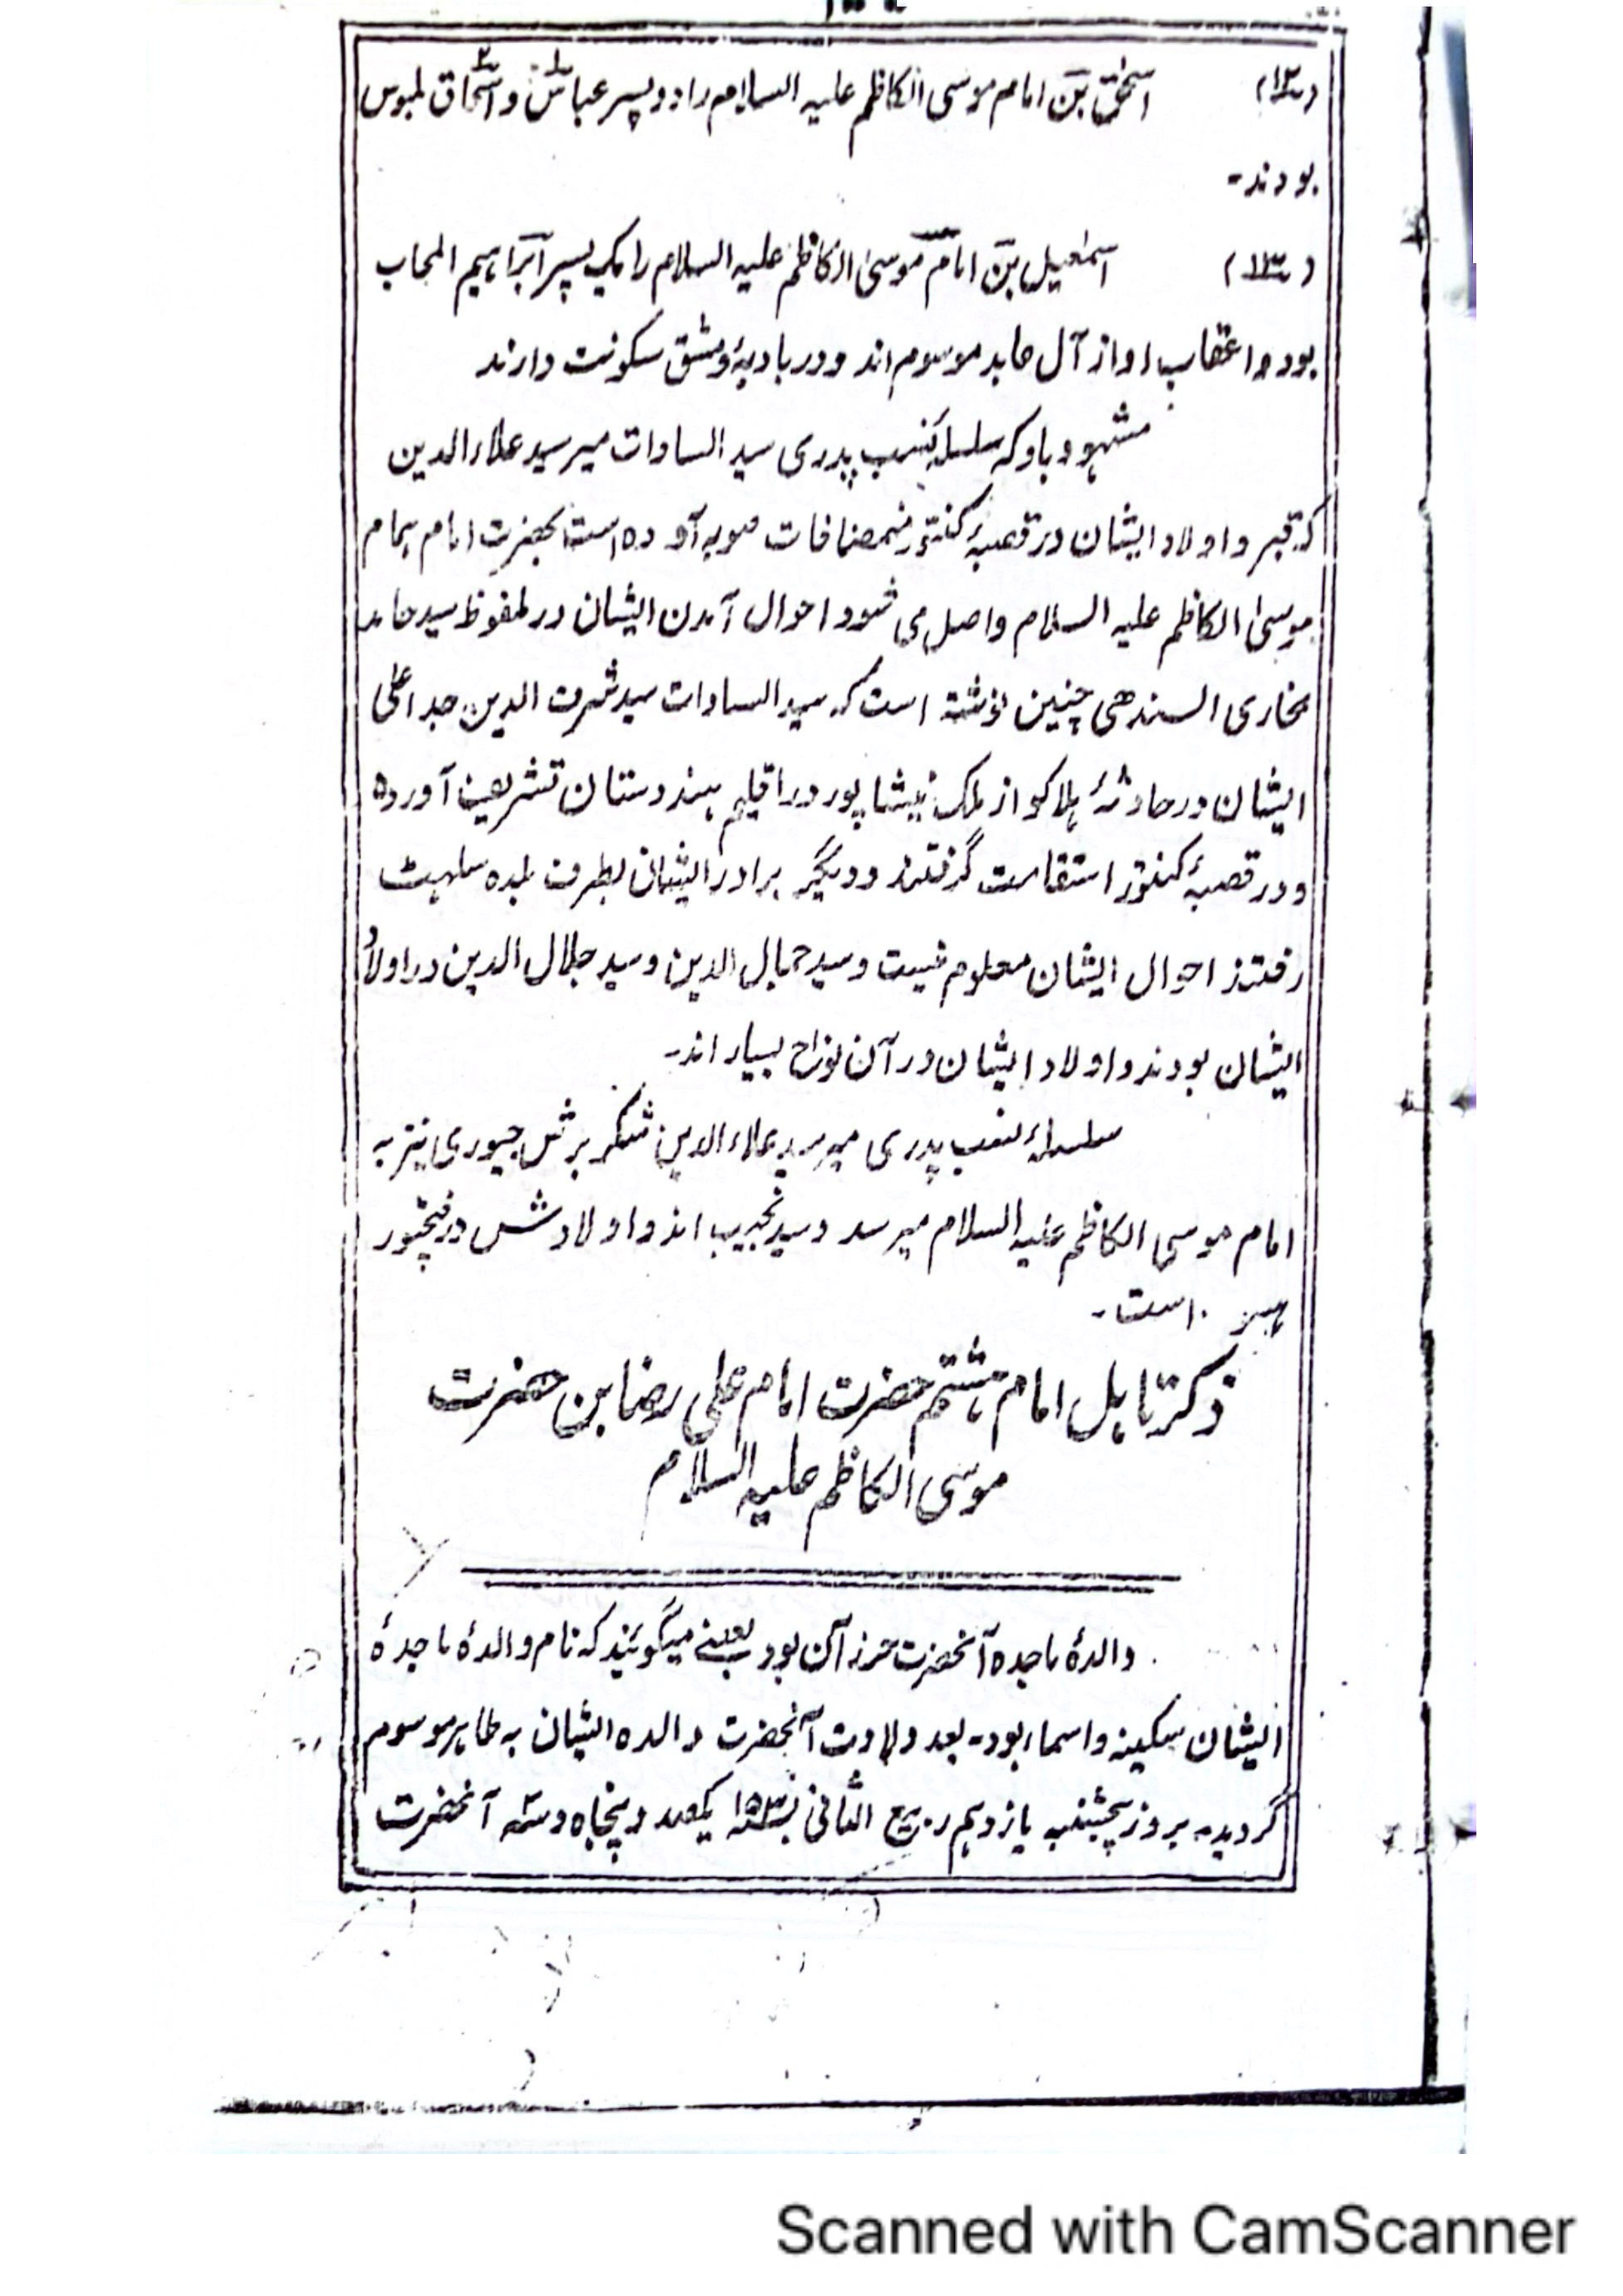 (۱۲) اسحٰق بن امام موسی الکاظم علیه السلام را دو پسر عباس و اسحاق ملبوس
بودند۔
(۱۳) اسمٰعیل بن امام موسیٰ الکاظم علیه السلام را یک پسر ابراہیم المجاب
بود و اعقاب او از آل عابد موسوم اند و در بادیۂ دمشق سکونت دارند
مشہود باد که سلسلۂ نسب پدری سید السادات میر سید علاء الدین
که قبر و اولاد ایشان در قصبۂ کنتور مضافات صوبه آوده است بحضرت امام ہمام
موسیٰ الکاظم علیه السلام واصل می شود و احوال آمدن ایشان در ملفوظ سید حامد
بخاری السندھی چنین نوشته است که سید السادات سید شرف الدین جد اعلی
ایشان در حادثۂ ہلاکو از ملک نیشاپور در اقلیم ہندوستان تشریف آورده
و در قصبۂ کنتور استقامت گرفتند و دیگر برادر ایشان بطرف بلده سلہٹ
رفتند احوال ایشان معلوم نیست و سید جمال الدین و سید جلال الدین در اولاد
ایشان بودند و اولاد ایشان در آن نواح بسیار اند۔
سلسلۂ نسب پدری میر سید علاء الدین شکر برش جیوری نیز به
امام موسی الکاظم علیه السلام میرسد و سید نجیب اند و اولادش در فتحپور
است۔
ذکر تاہل امام ہشتم حضرت امام علی رضا بن حضرت
موسی الکاظم علیه السلام
والدۂ ماجده آنحضرت بود بعضے میگوئیند که نام والدۂ ماجدۂ
ایشان سکینه و اسماء بود۔ بعد ولادت آنحضرت والده ایشان به طاہر موسوم
گردید۔ بروز پنجشنبه یازدہم ربیع الثانی ۱۵۳ یکصد و پنجاه و سه آنحضرت
Scanned with CamScanner